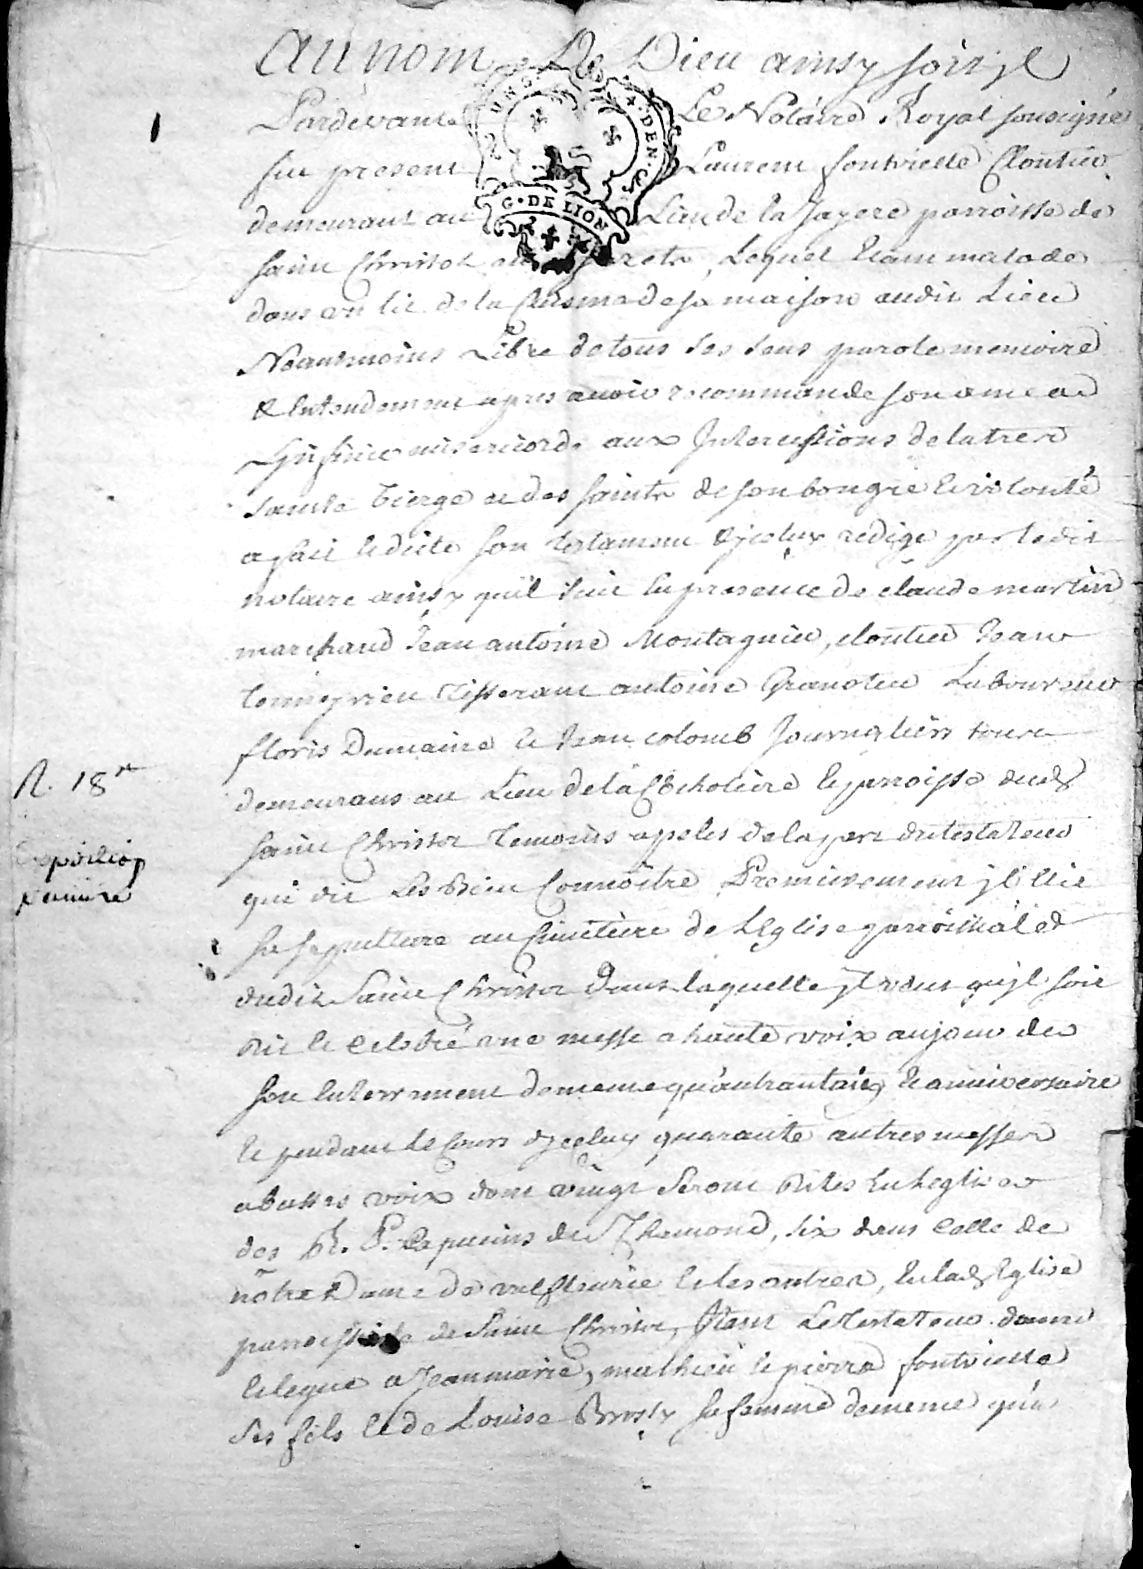 au nom De Dieu ainsy soit jl
Pardevant Le Notaire Royal sousigné
fut present Laurent fontvielle Cloutier
demeurant au Lieu de la Jayere parroisse de
saint Christot, Lequel Etant malade
dans un lit de la maison audit Lieu
Neantmoins Libre de tous ses sens parole memoire
& Entendement apres avoir recommande son ame a
Linfinie misericorde aux Intercessions de la tres
sainte vierge et des saints de son bon gré & volonté
a fait & dicté son testament & jceluy redigé par ledit
notaire ainsy quil suit En presence de claude martin
marchand Jean antoine Montagnier, cloutier Jean
tisserant antoine Granotier Laboureur
floris Dumaine & Jean colomb Journalier tous
demeurans au Lieu de la & parroisse dud.
saint Christot Temoins apelés de la part du testateur
qui dit Les Bien Connoître Premierement jl Elit
sa sepulture au Cimetiere de LEglise parroissiale
dudit Saint Christot Dans laquelle jl veut qujl soit
dit & celebré une messe a haute voix au jour de
son Enterrement de meme qu'au trantain & anniversaire
& pendant le Cours djceluy quarante autres messes
a basses voix dont vingt seront dites En Leglise
des R. P. Capucins de St Chamond, six dans celle de
nôtre Dame de valfleurie & les autres, En lad. Eglise
parroissiale de Saint Christot, Item Le testateur donne
& legue a Jean marie, mathieu & pierre fontvielle
ses fils & de Louise Brosly sa femme de meme qu'a
R. 18
G. DE LION